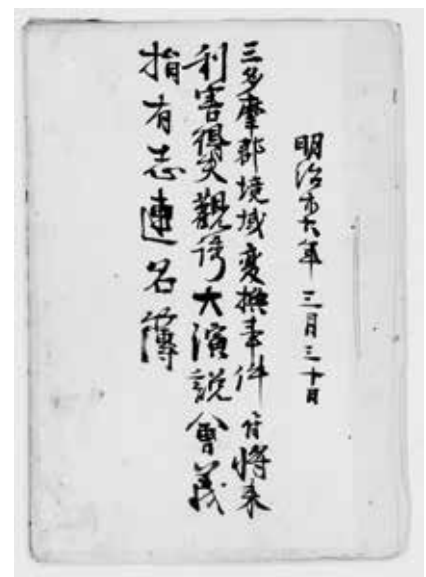 明治廿六年三月三十日
三多摩郡境域変換事件ニ付将来
利害得失観 大演説會義
捐有志連名簿